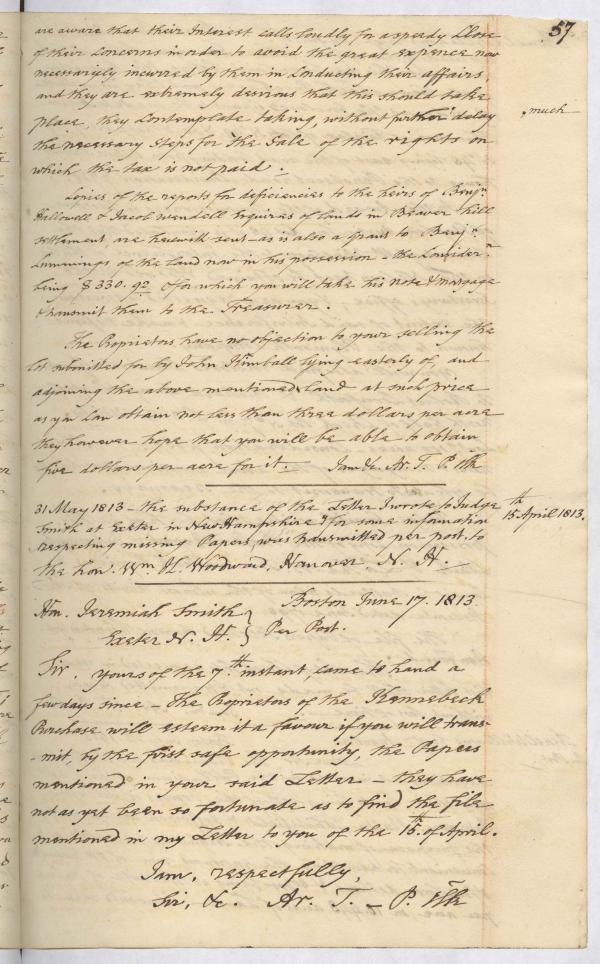 57
are aware that their Interest calls loudly for a speedy Close
of their Concerns in order to avoid the great expence now
necessaryly incurred by them in Conducting their affairs
and they are extremely desirous that this should take
place, they Contemplate taking, without further delay
, much
the necessary steps for the Sale of the rights on
which the tax is not paid.
Copies of the reports for deficiencies to the heirs of Benjn
Hallowell & Jacob Wendell Esquires of lands in Beaver hill
settlement, are herewith sent - as is also a grant to Benjn
Cummings of the land now in his possession - the Considern
being $330.92 for which you will take his note & morgage
& transmit them to the Treasurer.
The Proprietors have no objection to your selling the
lot submitted for by John Kimball lying easterly of, and
adjoining the above mentioned land at such price
as you can obtain not less than three dollars per acre
they however hope that you will be able to obtain
five dollars per acre for it. Iam &c. Ar. T. P. Clk
31 May 1813 - the substance of the Letter I wrote to Judge
15th April 1813.
Smith at Exeter in New Hampshire for some information
respecting missing Papers, was transmitted per post, to
the hon. Wm H. Woodward, Hanover, N. H.
Boston June 17. 1813
Hon. Jeremiah Smith
Exeter N. H. } Per Post.
Sir, yours of the 7th instant, came to hand a
few days since - The Proprietors of the Kennebeck
Purchase will esteem it a favour if you will trans-
-mit, by the first safe opportunity, the Papers
mentioned in your said Letter - they have
not as yet been so fortunate as to find the file
mentioned in my Letter to you of the 15th of April.
Iam, respectfully,
Sir, &c. Ar. T. - P. Clk